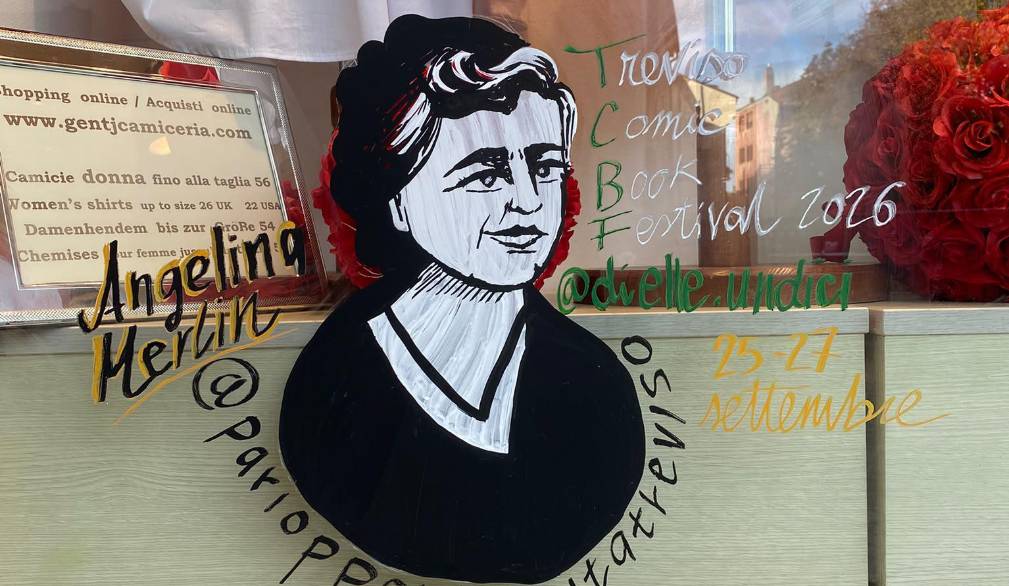 Shopping online / Acquisti online
www.gentjcamiceria.com
Camicie donna fino alla taglia 56
Women's shirts up to size 26 UK 22 USA
Damenhendem bis zur GröRe 54
Chemises pour femme
Angelina
Merlin
Treviso
Comic
Book
Festival 2026
@dielle.undici
25-27
settembre